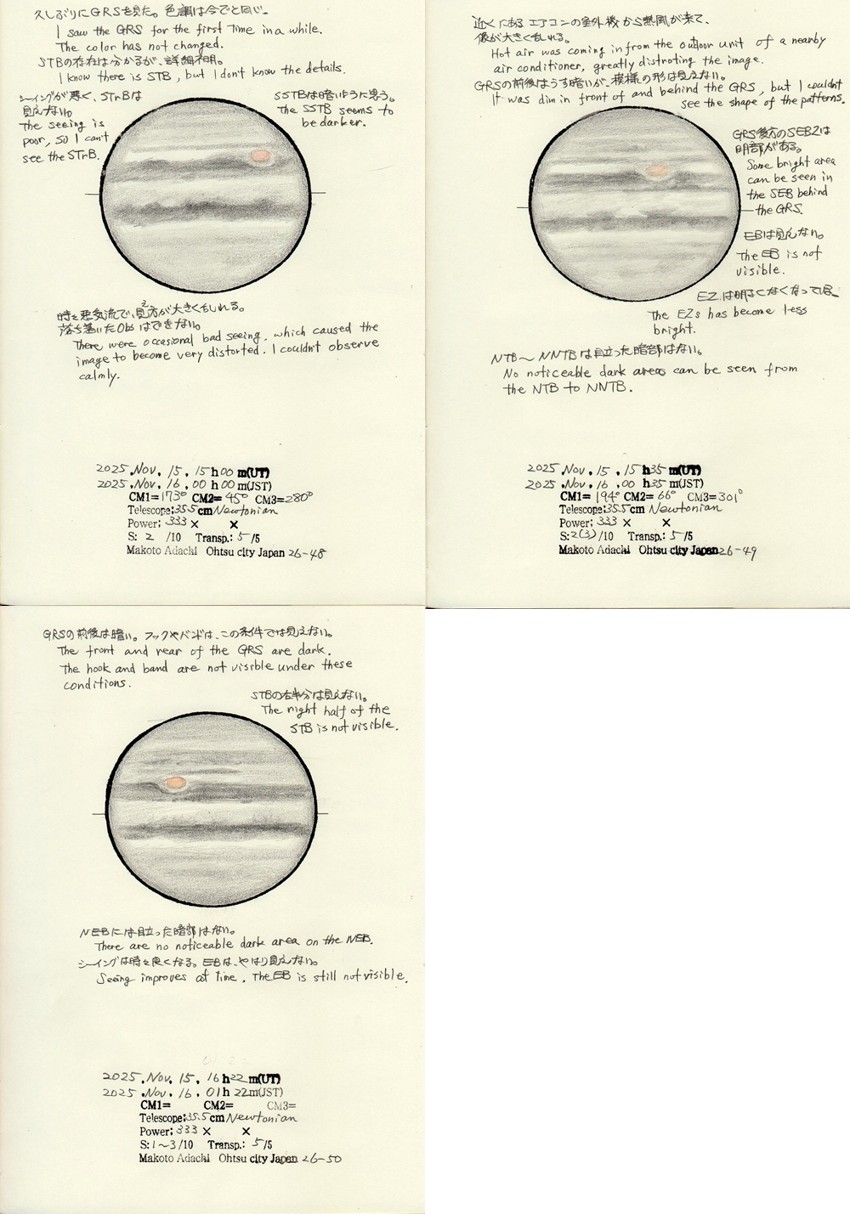 久しぶりにGRSを見た。色調は今までと同じ。
I saw the GRS for the first time in a while.
The color has not changed.
STBの存在は分かるが、詳細不明。
I know there is STB, but I don't know the details.
シーイングが悪く、STrBは
見えない。
The seeing is
poor, so I can't
see the STrB.
SSTBは暗いように思う。
The SSTB seems to
be darker.
時々悪気流で、見え方が大きくもじれる。
落ち着いたObsはできない。
There were occasional bad seeing, which caused the
image to become very distorted. I couldn't observe
calmly.
2025.Nov. 15. 15h00m(UT)
2025.Nov. 16. 00h00m(JST)
CM1=173° CM2=45° CM3=280°
Telescope:35.5cm Newtonian
Power: 333 × ×
S: 2 /10 Transp.: 5/5
Makoto Adachi Ohtsu city Japan 26-48
近くにあるエアコンの室外機から熱風が来て、
像が大きくもじれる。
Hot air was coming in from the outdoor unit of a nearby
air conditioner, greatly distroting the image.
GRSの前後はうす暗いが、模様の形は見えない。
It was dim in front of and behind the GRS, but I couldn't
see the shape of the patterns.
GRS後方のSEBZは
明部がある。
Some bright area
can be seen in
the SEB behind
the GRS.
EBは見えない。
The EB is not
visible.
EZは明るくなくなっている。
The EZs has become less
bright.
NTB〜NNTBは目立った暗部はない。
No noticeable dark areas can be seen from
the NTB to NNTB.
2025.Nov. 15. 15h35m(UT)
2025.Nov. 16. 00h35m(JST)
CM1=194° CM2=66° CM3=301°
Telescope:35.5cm Newtonian
Power: 333 × ×
S:2(3)/10 Transp.: 5/5
Makoto Adachi Ohtsu city Japan 26-49
GRSの前後は暗い。フックやバンドは、この条件では見えない。
The front and rear of the GRS are dark.
The hook and band are not visible under these
conditions.
STBの右半分は見えない。
The right half of the
STB is not visible.
NEBには目立った暗部はない。
There are no noticeable dark area on the NEB.
シーイングは時々良くなる。EBは、やはり見えない。
Seeing improves at time. The EB is still not visible.
2025.Nov. 15. 16h22m(UT)
2025.Nov. 16. 01h22m(JST)
CM1= CM2= CM3=
Telescope:35.5cm Newtonian
Power: 333 × ×
S:1〜3/10 Transp.: 5/5
Makoto Adachi Ohtsu city Japan 26-50